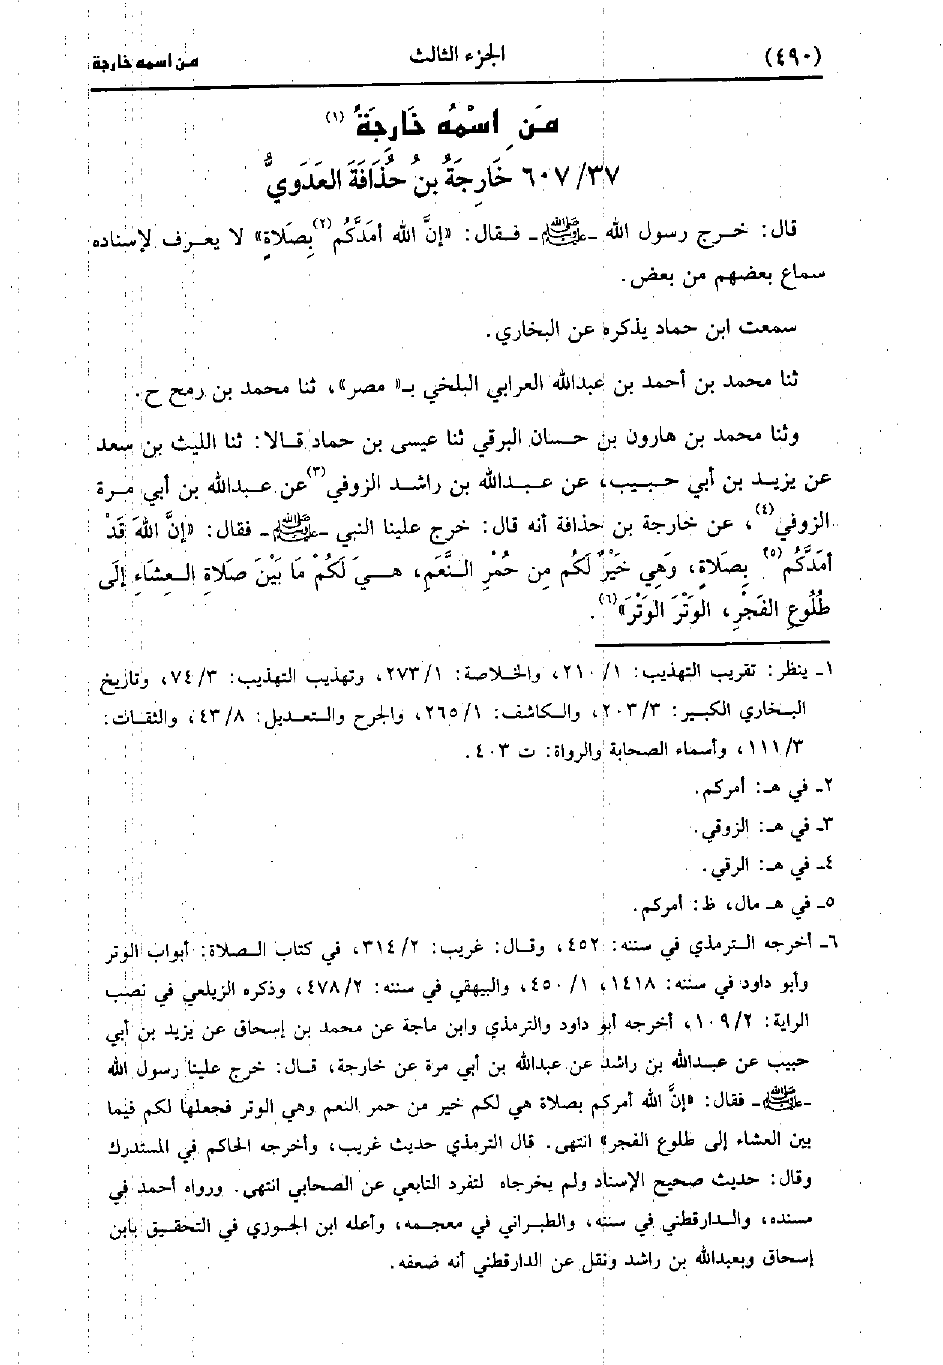 (٤٩٠) الجزء الثالث من اسمه خارجة
مَنِ اسْمُهُ خَارِجَةُ (١)
٦٠٧/٣٧ خَارِجَةُ بنُ حُذَافَةَ العَدَوِيُّ
قال: خرج رسول الله -ﷺ- فقال: «إنَّ الله أمَدَّكُم(٢) بِصَلَاةٍ» لا يعرف لإسناده
سماع بعضهم من بعض.
سمعت ابن حماد يذكره عن البخاري.
ثنا محمد بن أحمد بن عبدالله العرابي البلخي بـ« مصر»، ثنا محمد بن رمح ح.
وثنا محمد بن هارون بن حسان البرقي ثنا عيسى بن حماد قالا: ثنا الليث بن سعد
عن يزيد بن أبي حبيب، عن عبدالله بن راشد الزوفي(٣) عن عبدالله بن أبي مرة
الزوفي(٤)، عن خارجة بن حذافة أنه قال: خرج علينا النبي -ﷺ- فقال: «إنَّ اللهَ قَدْ
أمَدَّكُم(٥) بِصَلَاةٍ، وَهِي خَيْرٌ لَكُم مِن حُمْرِ النَّعَمِ، هِيَ لَكُمْ مَا بَيْنَ صَلَاةِ العِشَاءِ إلَى
طُلُوعِ الفَجْرِ، الوَتْرَ الوَتْرَ»(٦).
١ـ ينظر: تقريب التهذيب: ٢١٠/١، والخلاصة: ٢٧٣/١، وتهذيب التهذيب: ٧٤/٣، وتاريخ
البخاري الكبير: ٢٠٣/٣، والكاشف: ٢٦٥/١، والجرح والتعديل: ٤٣/٨، والثقات:
١١١/٣، وأسماء الصحابة والرواة: ت ٤٠٣.
٢ـ في هـ: أمركم.
٣ـ في هـ: الزوقي.
٤ـ في هـ: الرقي.
٥ـ في هـ مال، ظ: أمركم.
٦ـ أخرجه الترمذي في سننه: ٤٥٢، وقال: غريب: ٣١٤/٢، في كتاب الصلاة: أبواب الوتر
وأبو داود في سننه: ١٤١٨، ٤٥٠/١، والبيهقي في سننه: ٤٧٨/٢، وذكره الزيلعي في نصب
الراية: ١٠٩/٢، أخرجه أبو داود والترمذي وابن ماجة عن محمد بن إسحاق عن يزيد بن أبي
حبيب عن عبدالله بن راشد عن عبدالله بن أبي مرة عن خارجة، قال: خرج علينا رسول الله
-ﷺ- فقال: «إنَّ الله أمركم بصلاة هي لكم خير من حمر النعم وهي الوتر فجعلها لكم فيما
بين العشاء إلى طلوع الفجر» انتهى. قال الترمذي حديث غريب، وأخرجه الحاكم في المستدرك
وقال: حديث صحيح الإسناد ولم يخرجاه لتفرد التابعي عن الصحابي انتهى. ورواه أحمد في
مسنده، والدارقطني في سننه، والطبراني في معجمه، وأعله ابن الجوزي في التحقيق بابن
إسحاق وبعبدالله بن راشد ونقل عن الدارقطني أنه ضعفه.